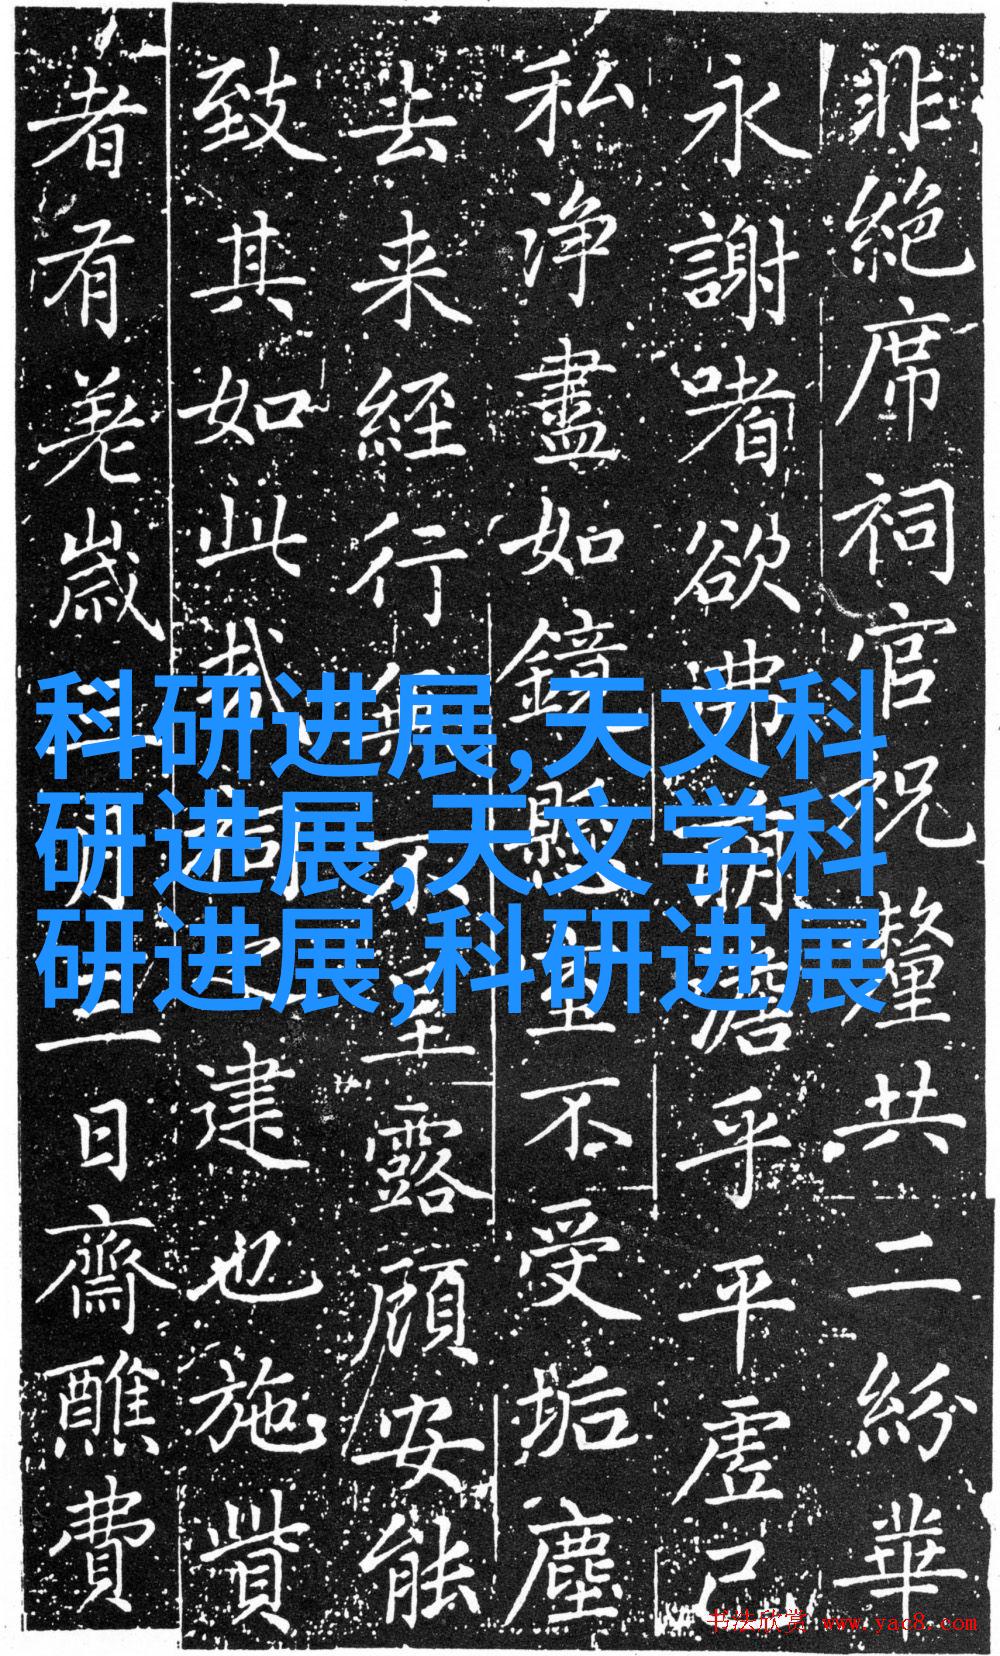 非絕席祠官祝釐共二紛華
永謝嗜欲弗萌澹乎平虛己
私淨盡如鏡懸不受垢塵
去来經行無不呈露顧安能
致其如此哉祠之建也施貲
者有差歲三月三日齋醮費
科研进展,天文科
研进展,天文学科
研进展,科研进展
书法欣赏 www.yac8.com